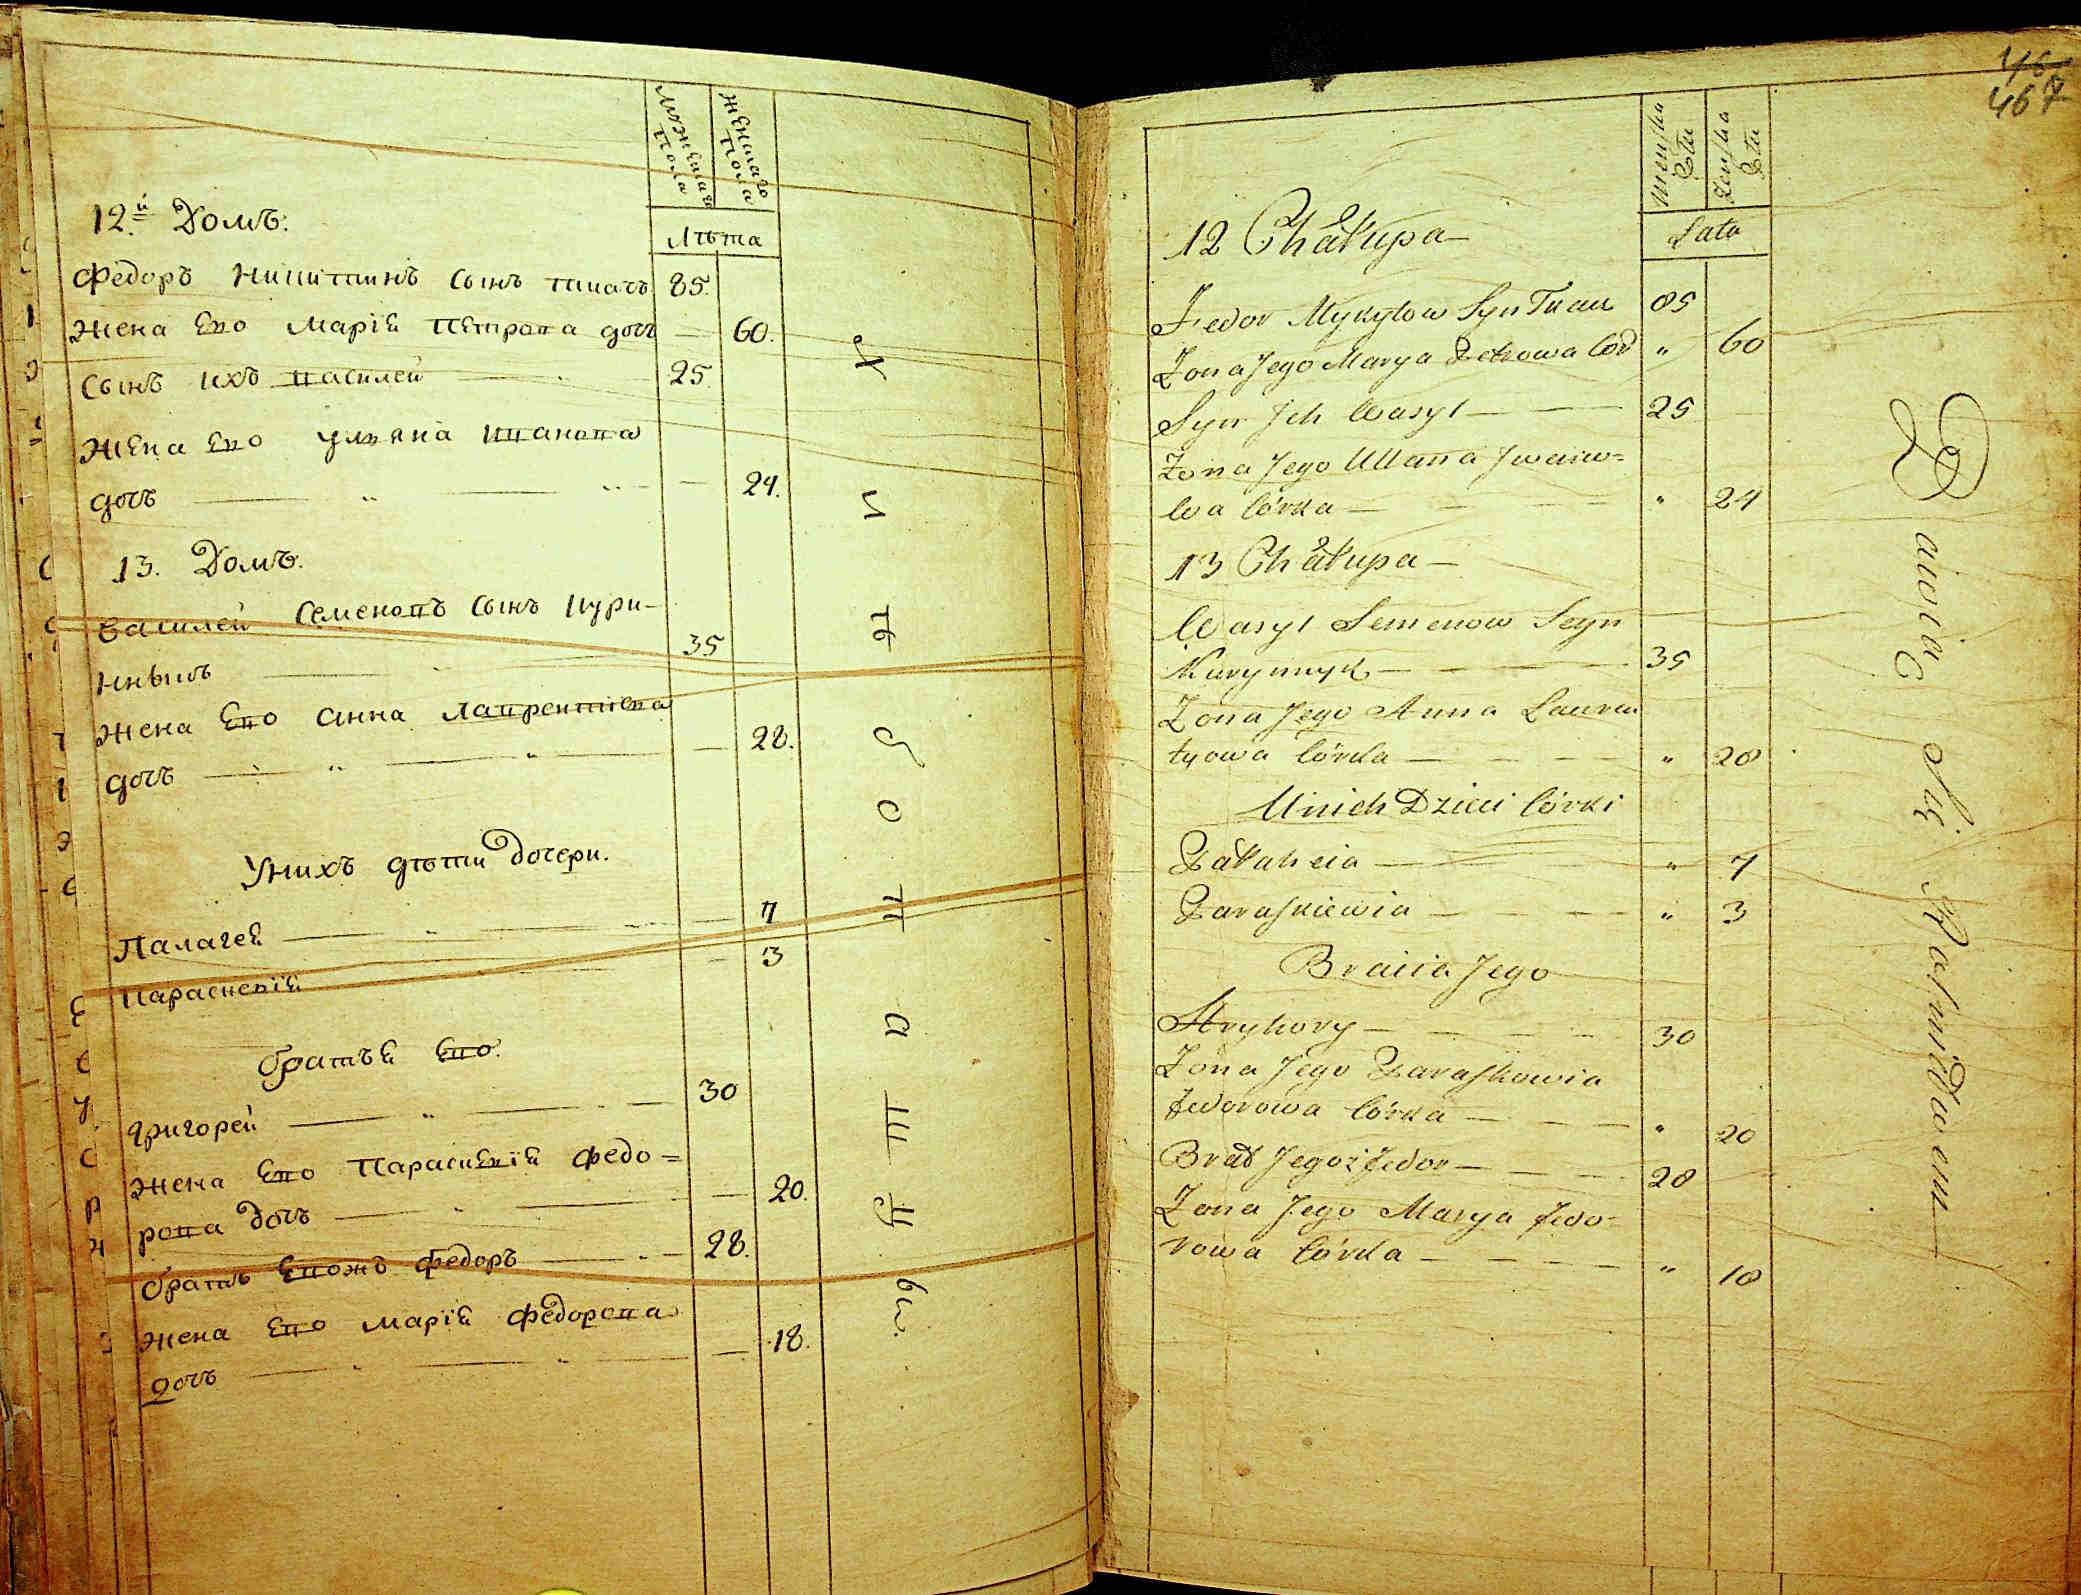 Мужескаго Пола
Женскаго Пола
Лѣта
12.й Домъ.
Федоръ Никитинъ сынъ ткачъ 85.
Жена Ево Марія Петрова дочь — 60.
Сынъ ихъ василей — 25.
Жена Ево ульяна иванова
дочь — 24.
13. Домъ.
Василей Семеновъ сынъ кури-
нныкъ — 35
Жена Ево Анна Лаврентіева
дочь — 28.
Унихъ дѣти дочери.
Палагея — 7
Параскевія — 3
братья Ево.
григорей — 30
Жена Ево Параскевія Федо=
рова дочь — 20.
братъ Евожъ федоръ — 28.
Жена Ево Марія Федорова
дочь — 18.
467
Męnska Płci
Zenska Płci
Lata
12 Chałupa
Fedor Mykytow Syn Tkacz 85
Zona Jego Marya Petrowa Cór „ 60
Syn Jch Wasyl — 25
Zona Jego Ullana Jwano=
wa Córka — „ 24
13 Chałupa
Wasyl Semenow Seyn
Kurynnyk — 35
Zona Jego Anna Lauren
tyowa Córka — „ 28
U nich Dzieci Córki
Pałaheia — „ 7
Paraskiewia — „ 3
Bracia Jego
Hryhory — 30
Zona Jego Paraskowia
Fedorowa Córka — „ 20
Brat Jegoż Fedor — 28
Zona Jego Marya Fedo=
rowa Córka — „ 18